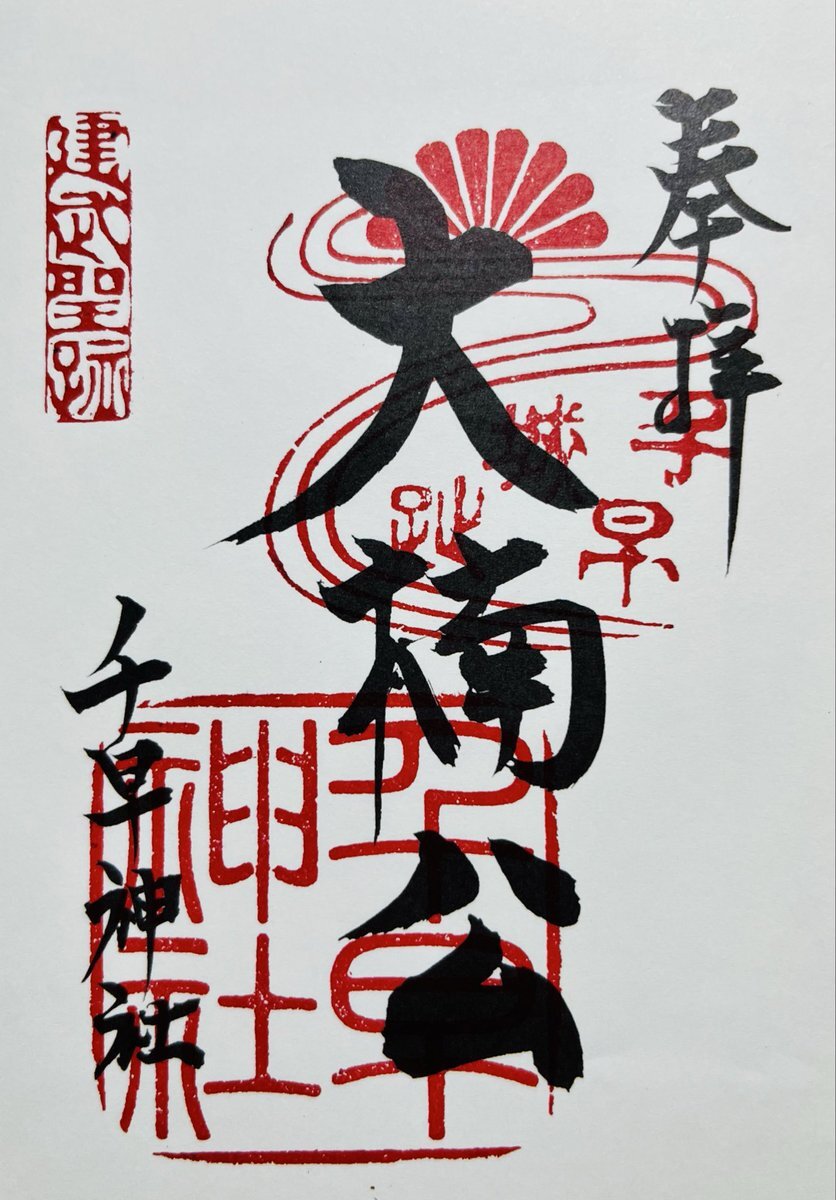 奉拝
千早
城跡
大楠公
建武聖跡
千早神社
千早神社